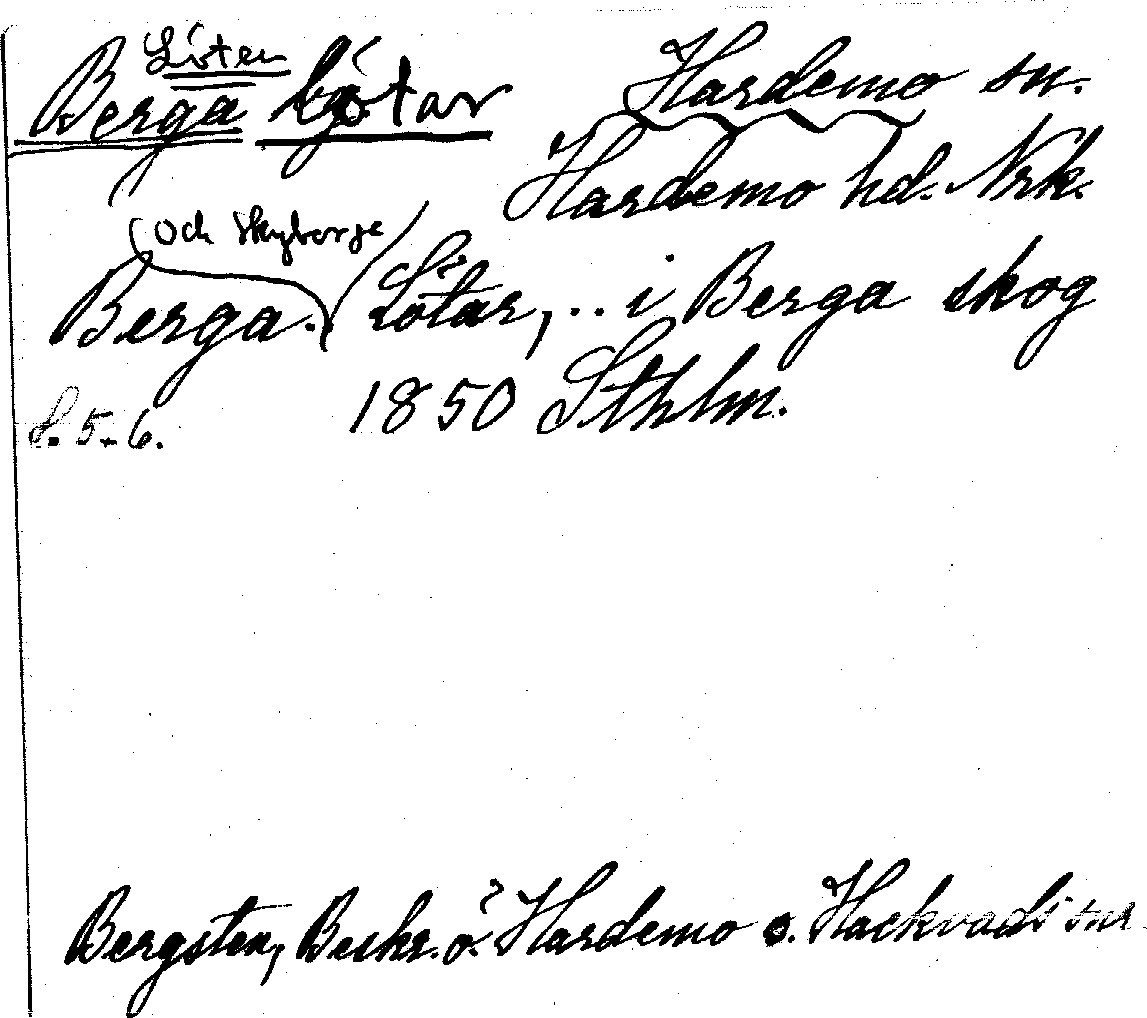 Löten
Berga Lötar Hardemo sn.
Hardemo hd. Nrk.
(och Skyberga)
Berga- Lötar, .. i Berga skog
s. 5-6. 1850 Sthlm.
Bergsten, Beskr. ö. Hardemo o. Hackvads snr